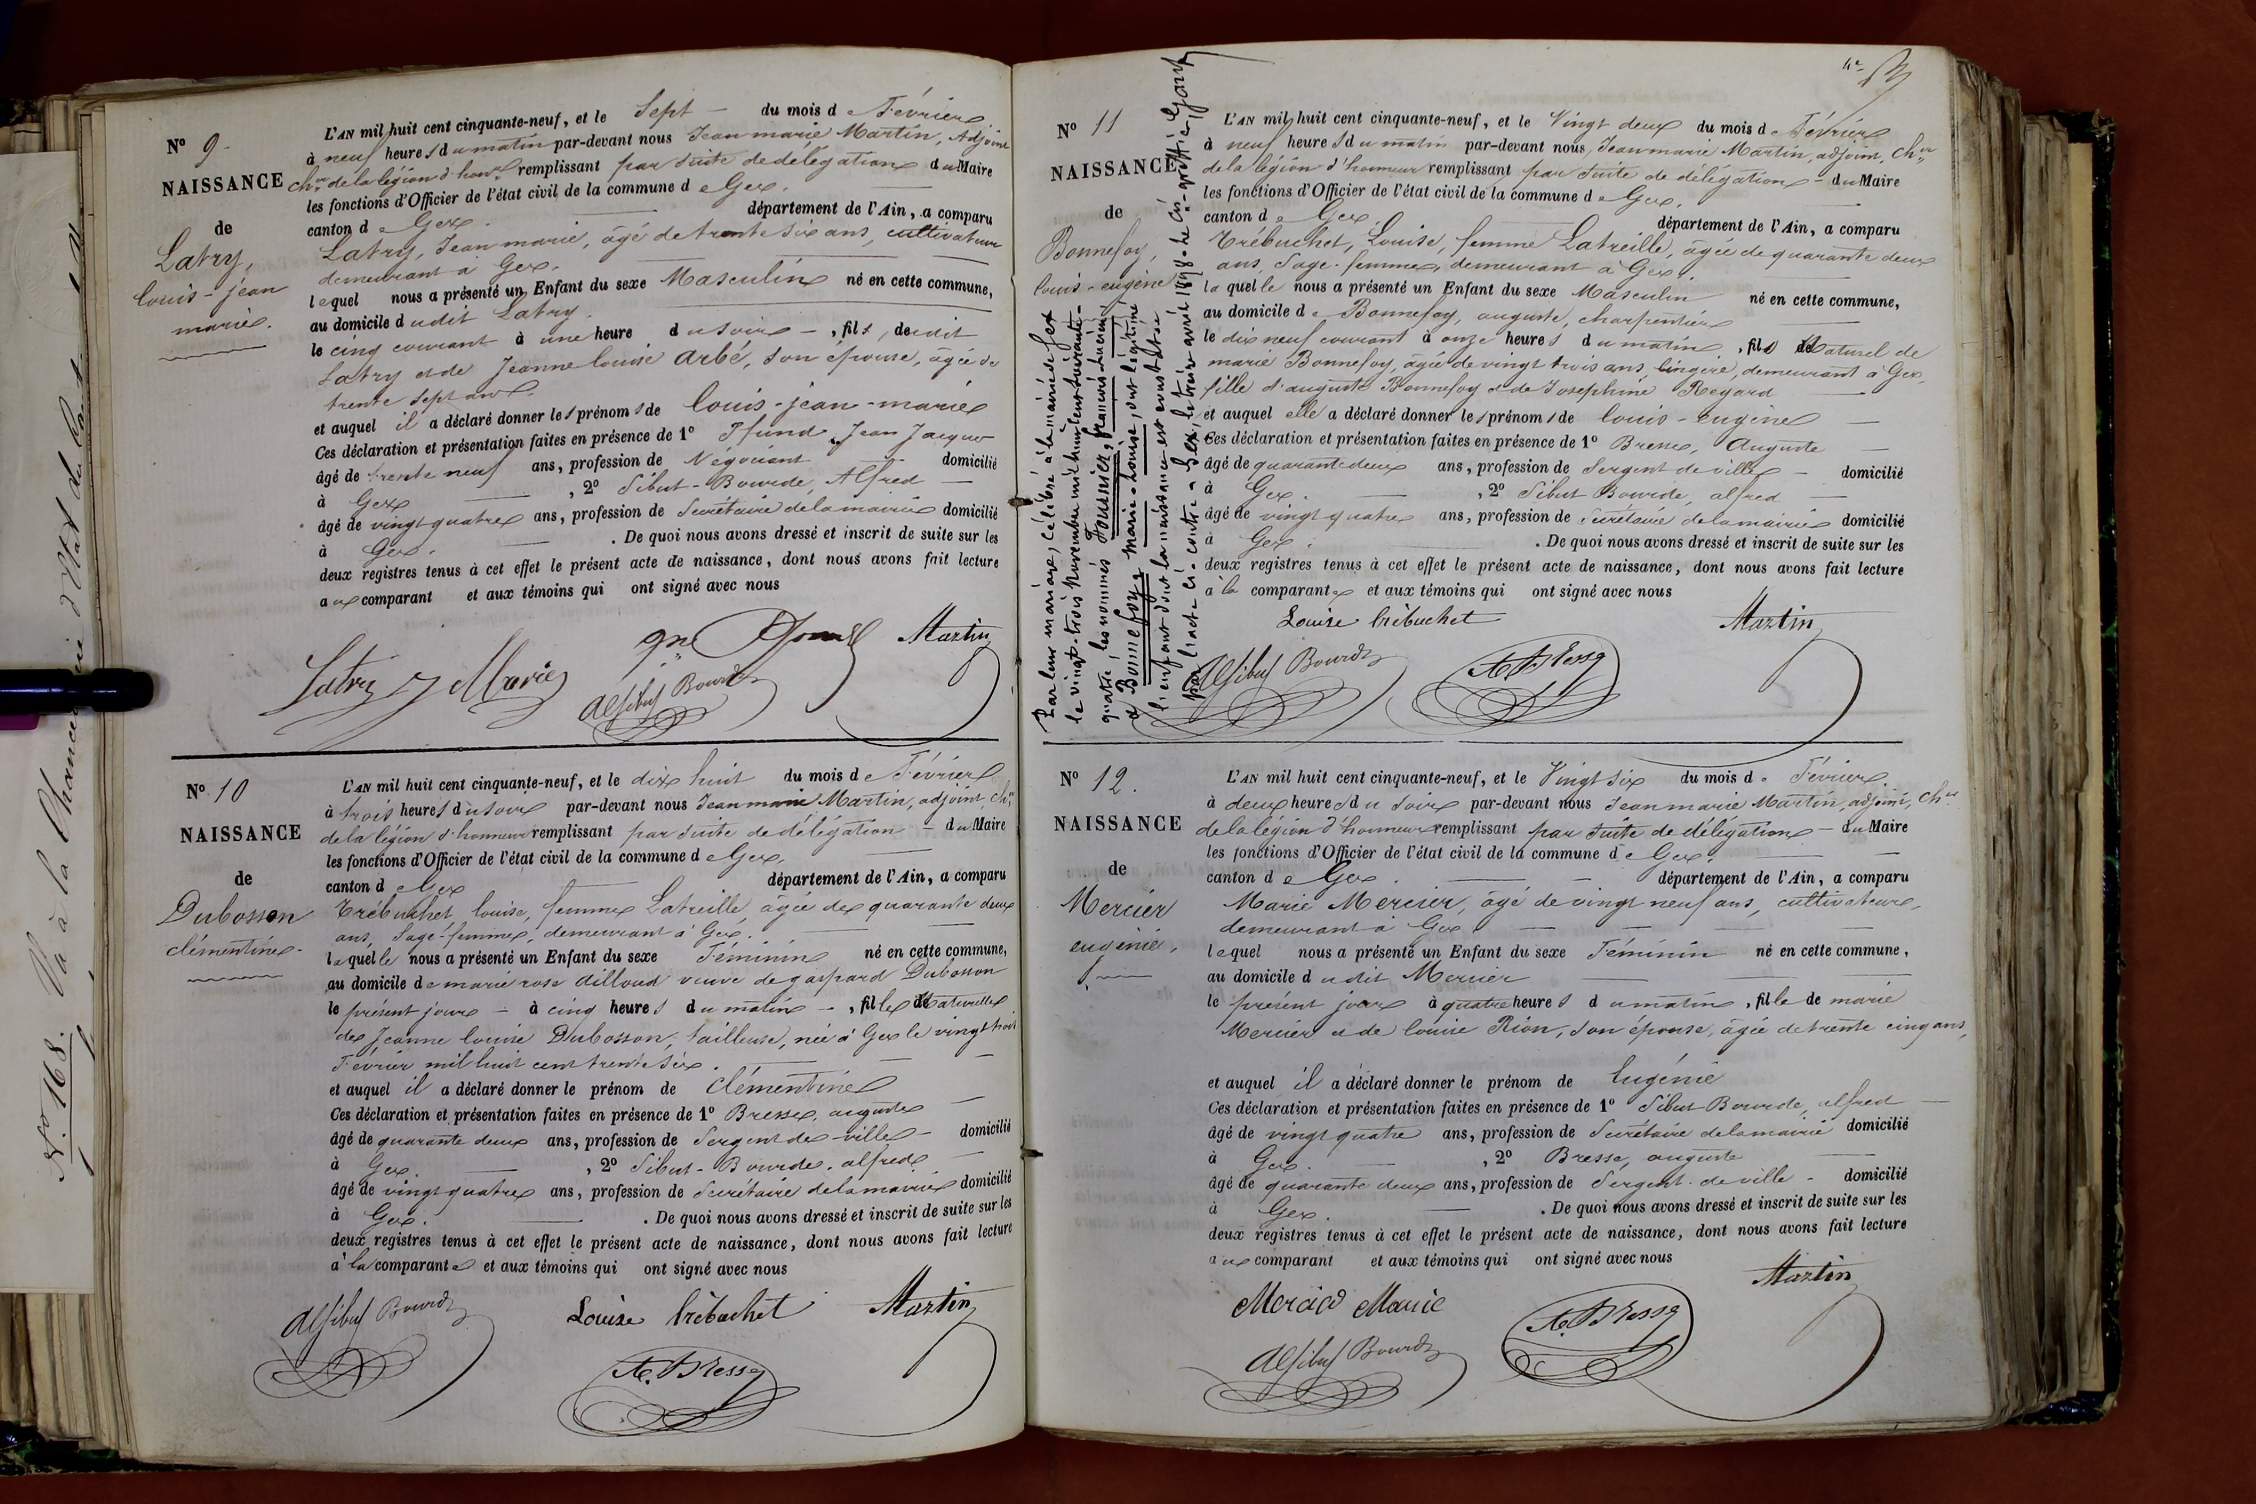 N° 9
NAISSANCE
de
Latry,
louis-jean
marie.
L'AN mil huit cent cinquante-neuf, et le Sept du mois de Février
à neuf heures du matin par-devant nous Jean marie Martin, Adjoint
Chr de la légion d'honr remplissant par suite de délégation du Maire
les fonctions d'Officier de l'état civil de la commune de Gex.
canton de Gex. département de l'Ain, a comparu
Latry, Jean marie, âgé de trente six ans, cultivateur
demeurant à Gex.
lequel nous a présenté un Enfant du sexe Masculin né en cette commune,
au domicile dudit Latry.
le cinq courant à une heure du soir, fils, dudit
Latry et de Jeanne louise Arbé, son épouse, âgée de
trente sept ans.
et auquel il a déclaré donner les prénoms de louis-jean-marie
Ces déclaration et présentation faites en présence de 1° Pfund, Jean Jacques
âgé de trente neuf ans, profession de Négociant domicilié
à Gex, 2° Sibut-Bourde, Alfred
âgé de vingt quatre ans, profession de Secrétaire de la mairie domicilié
à Gex. De quoi nous avons dressé et inscrit de suite sur les
deux registres tenus à cet effet le présent acte de naissance, dont nous avons fait lecture
aux comparant et aux témoins qui ont signé avec nous
Martin
Latry Marie
A Sibut Bourde
N° 10
NAISSANCE
de
Dubosson
clémentine
L'AN mil huit cent cinquante-neuf, et le dix huit du mois de Février
à trois heures du soir par-devant nous Jean marie Martin, adjoint, Chr
de la légion d'honneur remplissant par suite de délégation du Maire
les fonctions d'Officier de l'état civil de la commune de Gex.
canton de Gex département de l'Ain, a comparu
Trébuchet, louise, femme Latreille, âgée de quarante deux
ans, Sage-femme, demeurant à Gex.
laquelle nous a présenté un Enfant du sexe Féminin né en cette commune,
au domicile de marie rose dilloud veuve de gaspard Dubosson
le présent jour à cinq heures du matin, fille naturelle
de Jeanne louise Dubosson, tailleuse, née à Gex le vingt trois
Février mil huit cent trente six.
et auquel il a déclaré donner le prénom de clémentine
Ces déclaration et présentation faites en présence de 1° Bresse, auguste
âgé de quarante deux ans, profession de Sergent de ville domicilié
à Gex, 2° Sibut-Bourde, alfred
âgé de vingt quatre ans, profession de Secrétaire de la mairie domicilié
à Gex. De quoi nous avons dressé et inscrit de suite sur les
deux registres tenus à cet effet le présent acte de naissance, dont nous avons fait lecture
à la comparante et aux témoins qui ont signé avec nous
A Sibut Bourde Louise trébuchet Martin
A. Bresse
N° 168. Va à la
N° 11
NAISSANCE
de
Bonnefoy,
louis-eugène
Par leur mariage, célébré à la mairie de Gex
le vingt-trois Novembre mil huit cent soixante-
quatre, les nommés Fournier, françois-lucien,
& Bonnefoy marie-Louise, ont légitimé
l'enfant dont la naissance est constatée
par l'acte ci-contre. Gex, le treize avril 1898. Le Cis-greffier,
L'AN mil huit cent cinquante-neuf, et le Vingt deux du mois de Février
à neuf heures du matin par-devant nous, Jean marie Martin, adjoint, Chr
de la légion d'honneur remplissant par suite de délégation du Maire
les fonctions d'Officier de l'état civil de la commune de Gex.
canton de Gex. département de l'Ain, a comparu
Trébuchet, Louise, femme Latreille, âgée de quarante deux
ans, Sage-femme, demeurant à Gex.
laquelle nous a présenté un Enfant du sexe Masculin né en cette commune,
au domicile de Bonnefoy, auguste, charpentier
le dix neuf courant à onze heures du matin, fils Naturel de
marie Bonnefoy, âgée de vingt trois ans, lingère, demeurant à Gex,
fille d'auguste Bonnefoy et de Joséphine Regard
et auquel elle a déclaré donner les prénoms de louis-eugène
Ces déclaration et présentation faites en présence de 1° Bresse, Auguste
âgé de quarante deux ans, profession de Sergent de ville domicilié
à Gex., 2° Sibut Bourde, alfred
âgé de vingt quatre ans, profession de Secrétaire de la mairie domicilié
à Gex. De quoi nous avons dressé et inscrit de suite sur les
deux registres tenus à cet effet le présent acte de naissance, dont nous avons fait lecture
à la comparante et aux témoins qui ont signé avec nous
Louise trébuchet Martin
A Sibut Bourde A. Bresse
N° 12.
NAISSANCE
de
Mercier
eugénie,
L'AN mil huit cent cinquante-neuf, et le Vingt six du mois de Février
à deux heures du soir par-devant nous Jean marie Martin, adjoint, Chr
de la légion d'honneur remplissant par suite de délégation du Maire
les fonctions d'Officier de l'état civil de la commune de Gex.
canton de Gex. département de l'Ain, a comparu
Marie Mercier, âgé de vingt neuf ans, cultivateur,
demeurant à Gex
lequel nous a présenté un Enfant du sexe Féminin né en cette commune,
au domicile dudit Mercier
le présent jour à quatre heures du matin, fille de marie
Mercier et de louise Rion, son épouse, âgée de trente cinq ans,
et auquel il a déclaré donner le prénom de Eugénie
Ces déclaration et présentation faites en présence de 1° Sibut Bourde, alfred
âgé de vingt quatre ans, profession de Secrétaire de la mairie domicilié
à Gex., 2° Bresse, auguste
âgé de quarante deux ans, profession de Sergent de ville domicilié
à Gex. De quoi nous avons dressé et inscrit de suite sur les
deux registres tenus à cet effet le présent acte de naissance, dont nous avons fait lecture
aux comparant et aux témoins qui ont signé avec nous
Martin
Mercier Marie A. Bresse
A Sibut Bourde